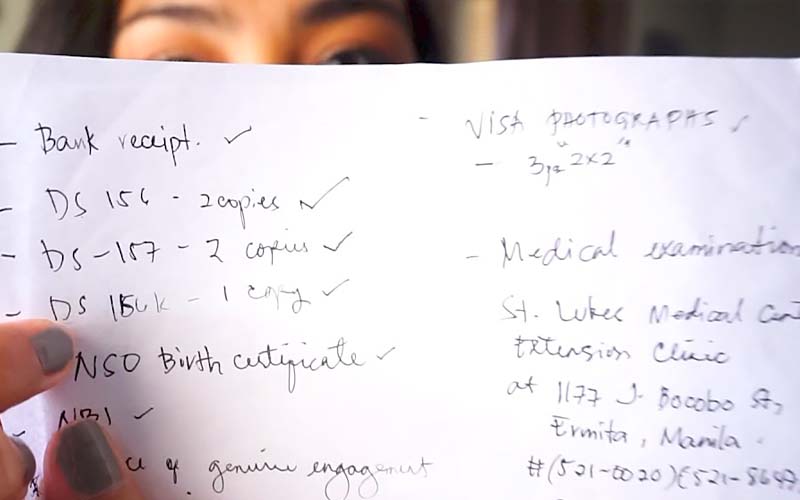 - Bank receipt. ✓
- DS 156 - 2 copies ✓
- DS-157 - 2 copies ✓
- DS 156k - 1 copy ✓
NSO Birth certificate ✓
- NBI ✓
of genuine engagement
- VISA PHOTOGRAPHS ✓
- 3pcs 2x2"
- Medical examination
St. Lukes Medical
Extension Clinic
at 1177 J. Bocobo St,
Ermita, Manila.
#(521-0020)